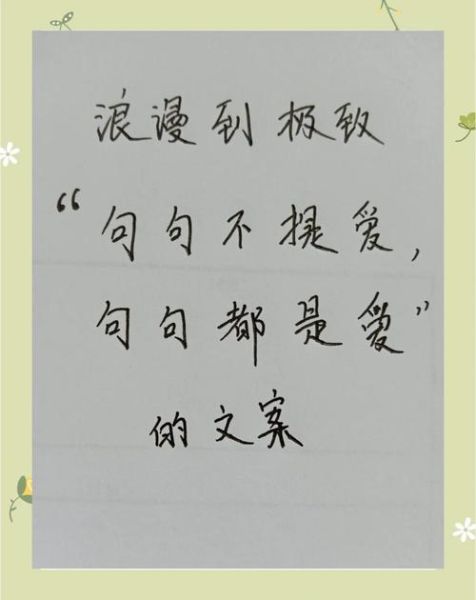 浪漫到极致
“句句不提爱,
句句都是爱”
的文案